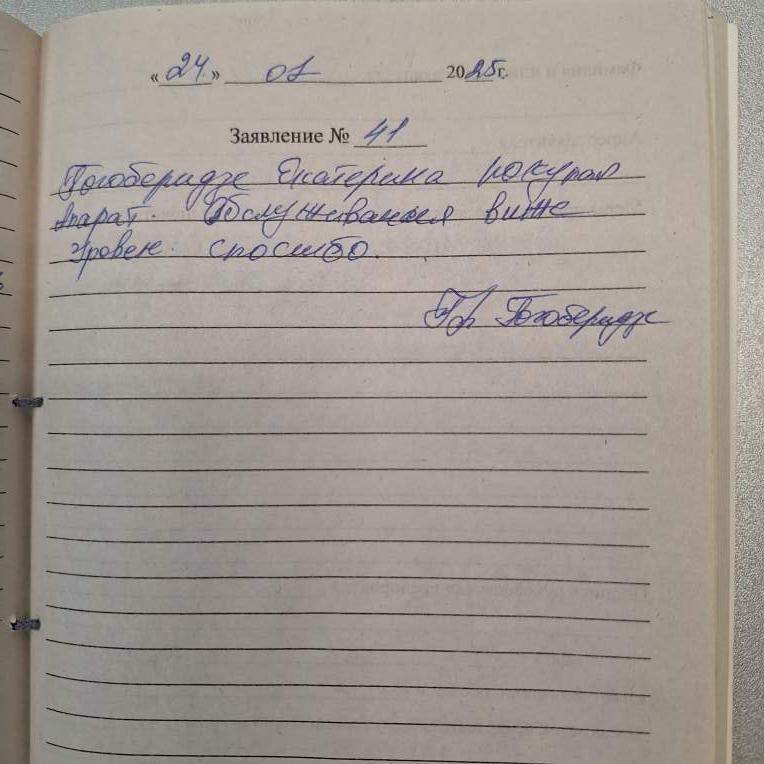 « 24. » 01 2025г.
Заявление № 41
Гогоберидзе Екатерина покупал
апарат. Обслуживания више
уровен. спосибо.
Гр Гогоберидзе